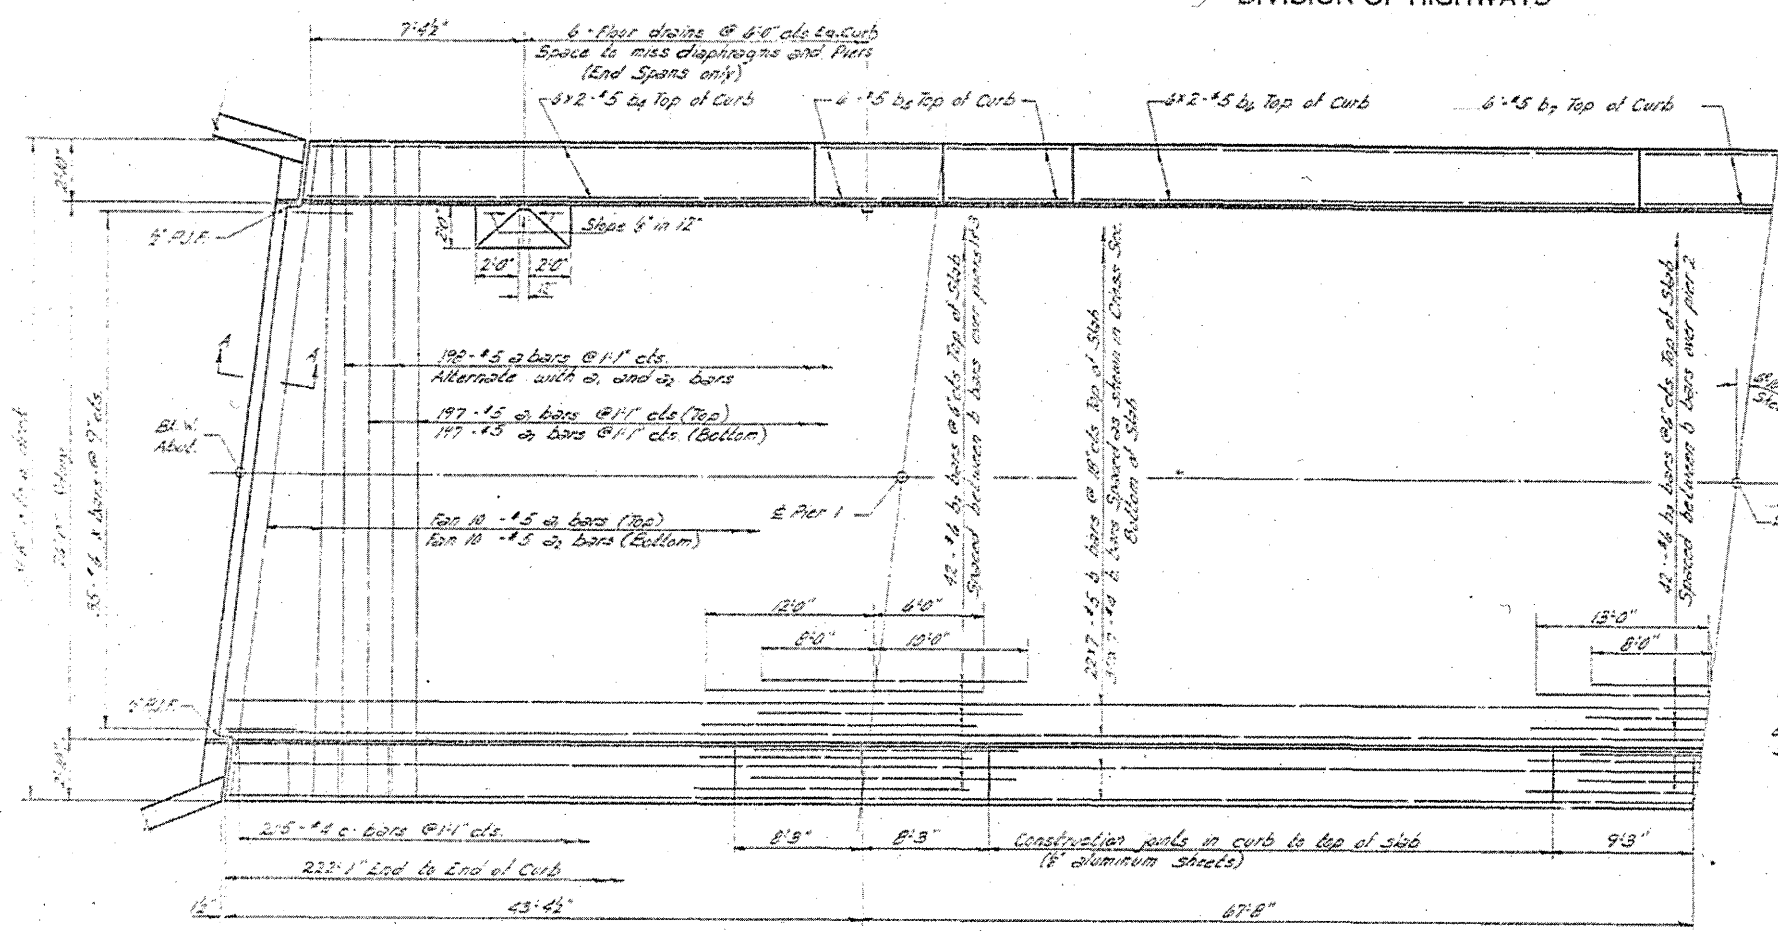 DIVISION OF HIGHWAYS
7'-4½"
6 - Floor drains @ 6'-0" cts. Ea. Curb
Space to miss diaphragms and Piers
(End Spans only)
6x2-#5 b4 Top of Curb
6-#5 b5 Top of Curb
6x2-#5 b6 Top of Curb
6-#5 b7 Top of Curb
2'-0"
½" P.J.F.
2'-0"
in 12"
2'-0"
2'-0"
A
A
198-#5 a bars @ 1'-1" cts.
Alternate with a1 and a2 bars
197-#5 a1 bars @ 1'-1" cts (Top)
197-#5 a2 bars @ 1'-1" cts. (Bottom)
Bk. W.
Abut.
℄ Pier 1
Fan 10 -#5 a1 bars (Top)
Fan 10 -#5 a2 bars (Bottom)
bars @ 9" cts.
42-#6 b2 bars @ 6" cts Top of Slab
Spaced between b bars over piers 1&3
22x7-#5 b bars @ 18" cts Top of Slab
b1 bars Spaced as shown in Cross Sec.
Bottom of Slab
42-#6 b3 bars @ 6" cts. Top of Slab
Spaced between b bars over pier 2
12'-0"
6'-0"
8'-0"
10'-0"
13'-0"
8'-0"
½" P.J.F.
2'-0"
205-#4 c bars @ 1'-1" cts.
222'-1" End to End of Curb
8'-3"
8'-3"
Construction joints in curb to top of slab
(⅛" aluminum sheets)
9'-3"
1½"
43'-4½"
67'-8"